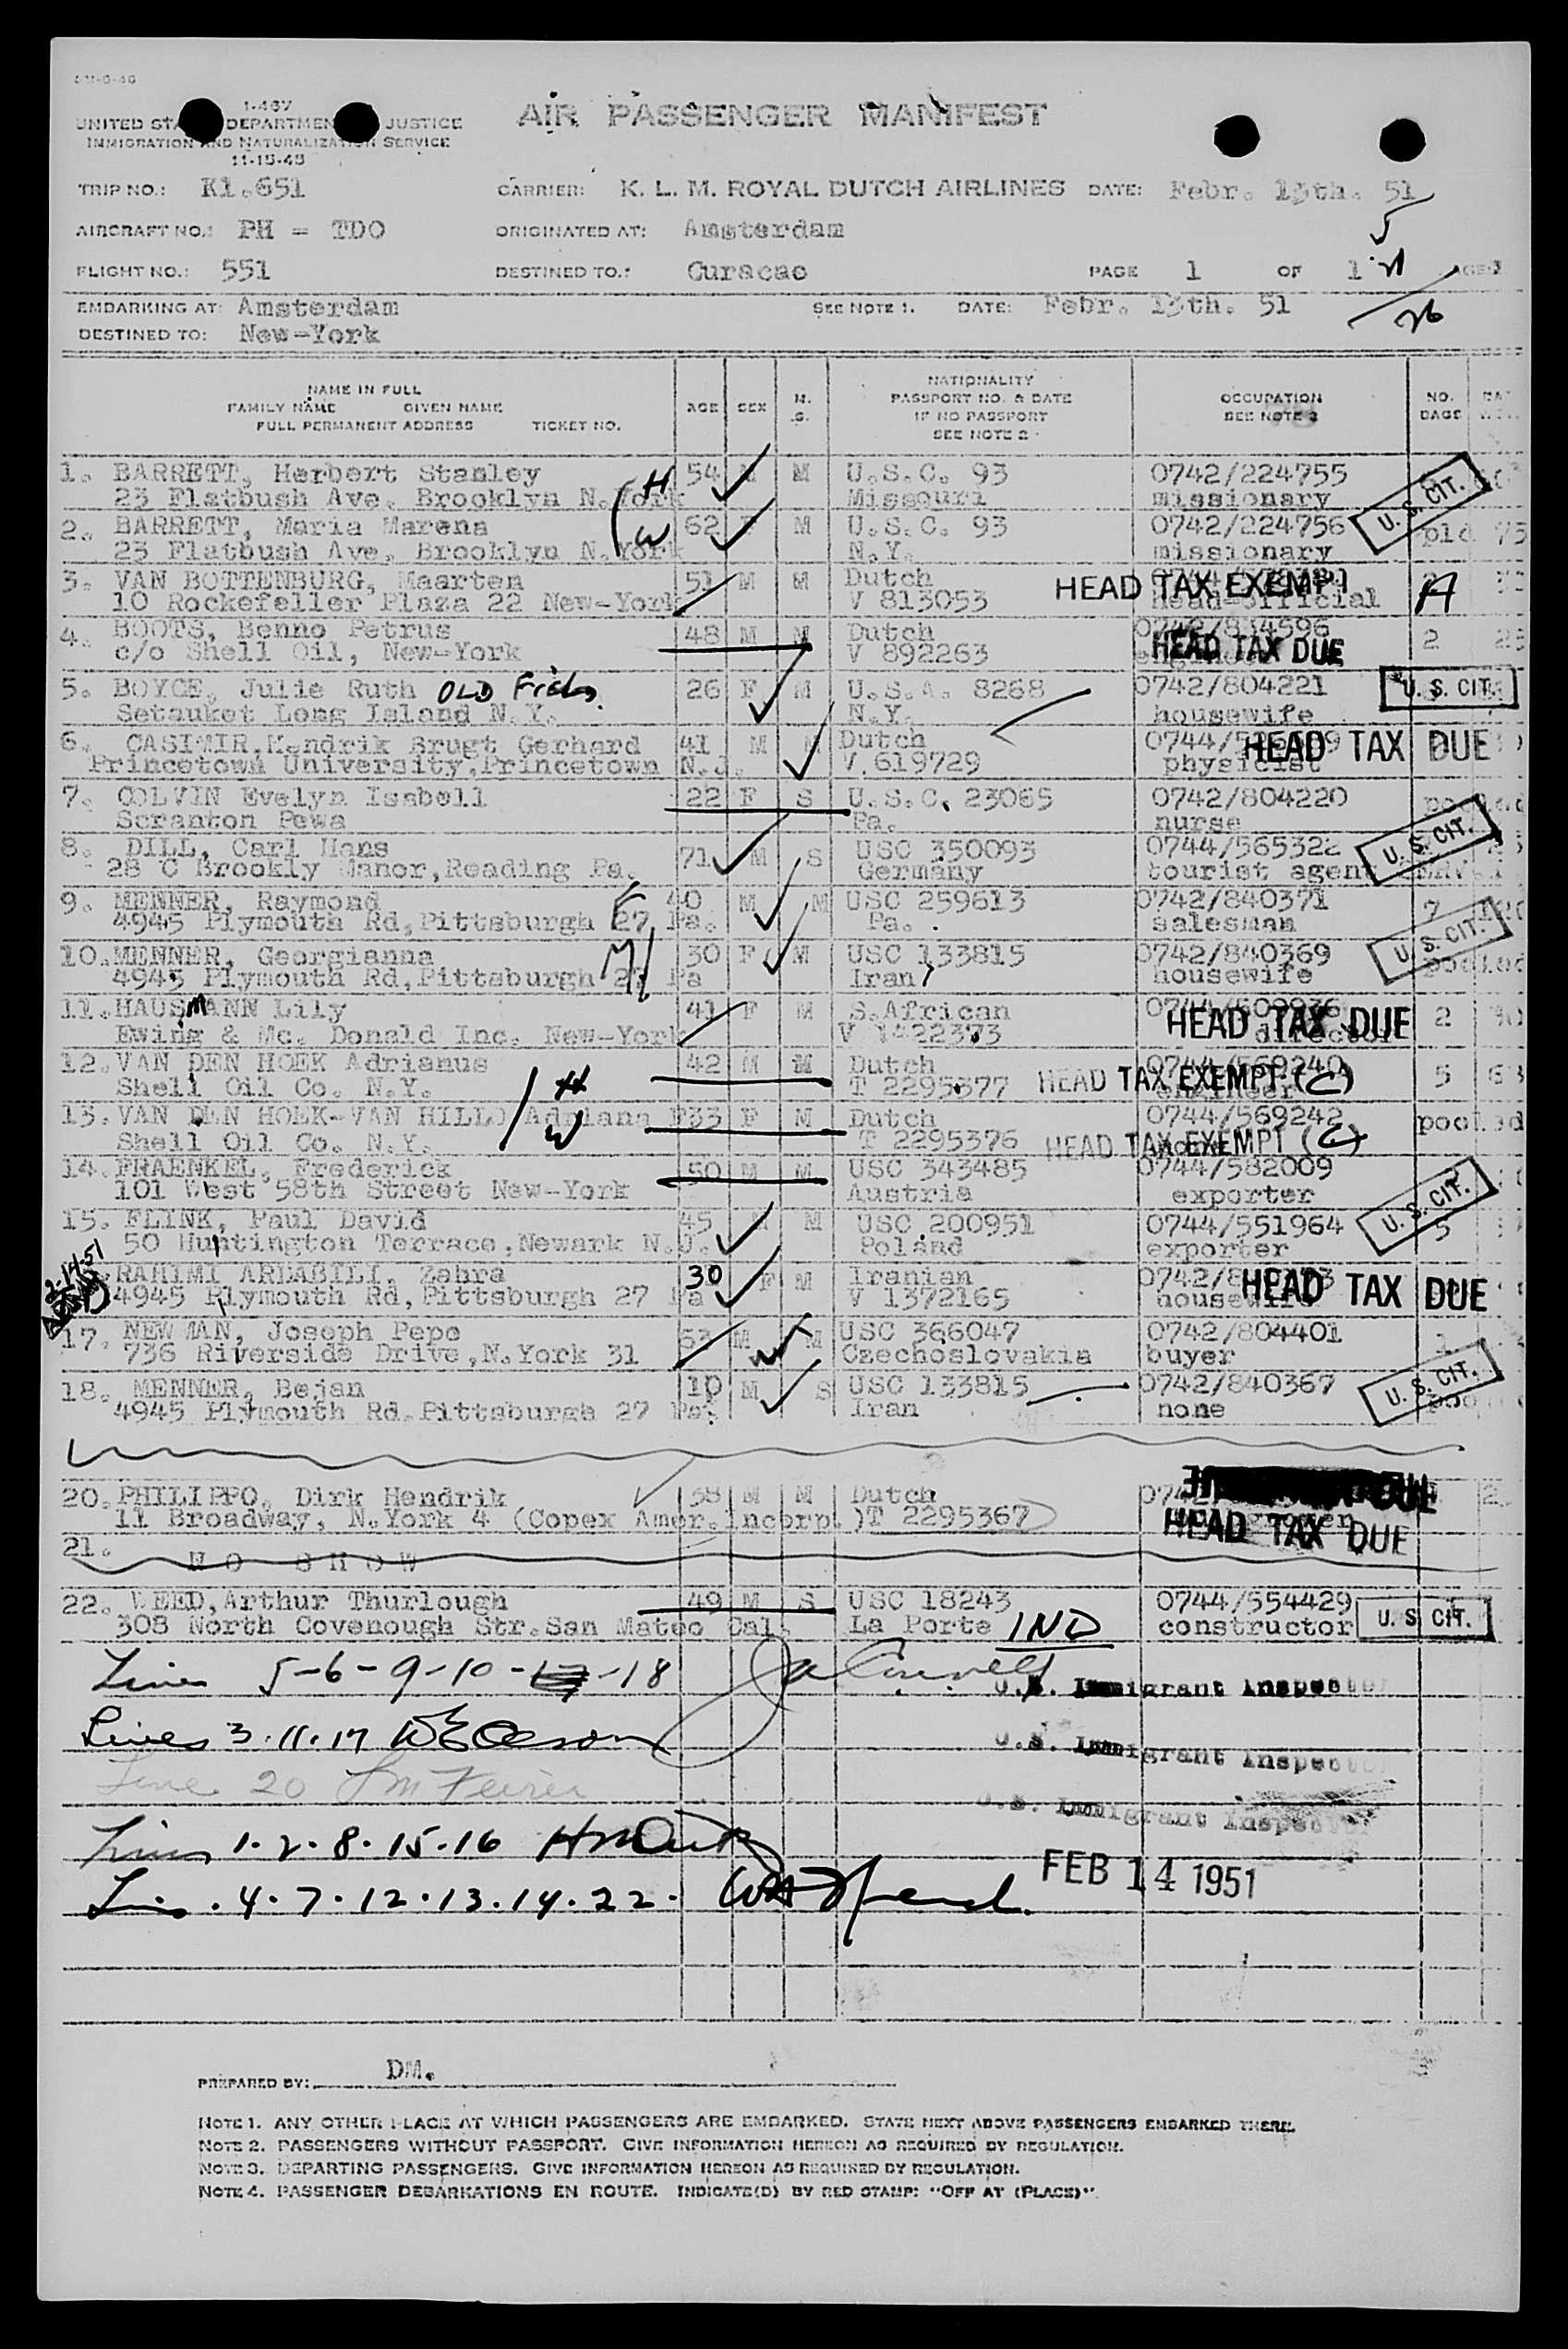 I-467
UNITED STATES DEPARTMENT JUSTICE
IMMIGRATION AND NATURALIZATION SERVICE
11-15-48
AIR PASSENGER MANIFEST
TRIP NO.: Kl.651 CARRIER: K. L. M. ROYAL DUTCH AIRLINES DATE: Febr. 13th. 51
AIRCRAFT NO.: PH = TDO ORIGINATED AT: Amsterdam 5
FLIGHT NO.: 551 DESTINED TO.: Curacao PAGE 1 OF 1
EMBARKING AT: Amsterdam SEE NOTE 1. DATE: Febr. 13th. 51 26
DESTINED TO: New-York
NAME IN FULL
FAMILY NAME GIVEN NAME
FULL PERMANENT ADDRESS TICKET NO.
AGE SEX M. S.
NATIONALITY
PASSPORT NO. & DATE
IF NO PASSPORT
SEE NOTE 2
OCCUPATION
SEE NOTE 3
NO. BAGS
1. BARRETT, Herbert Stanley H 54 M U.S.C. 93 0742/224755
23 Flatbush Ave. Brooklyn N.York Missouri missionary U. S. CIT.
2. BARRETT, Maria Marena W 62 F M U.S.C. 93 0742/224756 pld 73
23 Flatbush Ave. Brooklyn N.York N.Y. missionary
3. VAN BOTTENBURG, Maarten 51 M M Dutch HEAD TAX EXEMPT A
10 Rockefeller Plaza 22 New-York V 813053 head-official
4. BOOTS, Benno Petrus 48 M M Dutch 0742/834596 2 25
c/o Shell Oil, New-York V 892263 HEAD TAX DUE
5. BOYCE, Julie Ruth OLD Fields. 26 F M U.S.A. 8268 0742/804221 U. S. CIT.
Setauket Long Island N.Y. N.Y. housewife
6. CASIMIR,Hendrik Brugt Gerhard 41 M M Dutch HEAD TAX DUE
Princetown University,Princetown N.J. V.619729 physicist
7. COLVIN Evelyn Isabell 22 F S U.S.C. 23065 0742/804220 pooled
Scranton Pewa Pa. nurse
8. DILL, Carl Hans 71 M S USC 350093 0744/565322 U. S. CIT.
28 C Brookly Manor,Reading Pa. Germany tourist agent
9. MENNER, Raymond F 40 M M USC 259613 0742/840371 7
4945 Plymouth Rd,Pittsburgh 27 Pa. Pa. salesman
10.MENNER, Georgianna M 30 F M USC 133815 0742/840369 U. S. CIT.
4945 Plymouth Rd,Pittsburgh 27 Pa Iran housewife pooled
11.HAUSMANN Lily 41 F M S.African HEAD TAX DUE 2
Ewing & Mc. Donald Inc. New-York V 1422373 director
12.VAN DEN HOEK Adrianus H 42 M M Dutch 0744/569240 5
Shell Oil Co. N.Y. T 2295377 HEAD TAX EXEMPT (C) engineer
13.VAN DEN HOEK-VAN HILLO Adriana F W 33 F M Dutch 0744/569242 pooled
Shell Oil Co. N.Y. T 2295376 HEAD TAX EXEMPT (C)
14.FRAENKEL, Frederick 50 M M USC 343485 0744/582009
101 West 58th Street New-York Austria exporter U. S. CIT.
15. FLINK, Paul David 45 M M USC 200951 0744/551964 5
50 Huntington Terrace,Newark N.J. Poland exporter
2-14-51
RAHIMI ARDABILI, Zahra 30 F M Iranian HEAD TAX DUE
4945 Plymouth Rd,Pittsburgh 27 Pa V 1372165 housewife
17. NEWMAN, Joseph Pepo 53 M M USC 366047 0742/804401 1
736 Riverside Drive,N.York 31 Czechoslovakia buyer
18. MENNER, Bejan 10 M S USC 133815 0742/840367 U. S. CIT.
4945 Plymouth Rd.Pittsburgh 27 Pa. Iran none
20.PHILIPPO, Dirk Hendrik 38 M M Dutch
11 Broadway, N.York 4 (Copex Amer.incorp.)T 2295367 HEAD TAX DUE
21. NO SHOW
22. WEED,Arthur Thurlough 49 M S USC 18243 0744/554429
308 North Covenough Str.San Mateo Cal. La Porte IND constructor U. S. CIT.
Lines 5-6-9-10- -18
U.S. Immigrant Inspector
Lines 3.11.17
U.S. Immigrant Inspector
Line 20
U.S. Immigrant Inspector
Lines 1.2.8.15.16
FEB 14 1951
Lines.4.7.12.13.14.22.
PREPARED BY: DM.
NOTE 1. ANY OTHER PLACE AT WHICH PASSENGERS ARE EMBARKED. STATE NEXT ABOVE PASSENGERS EMBARKED THERE.
NOTE 2. PASSENGERS WITHOUT PASSPORT. GIVE INFORMATION HEREON AS REQUIRED BY REGULATION.
NOTE 3. DEPARTING PASSENGERS. GIVE INFORMATION HEREON AS REQUIRED BY REGULATION.
NOTE 4. PASSENGER DEBARKATIONS EN ROUTE. INDICATE(D) BY RED STAMP: "OFF AT (PLACE)".